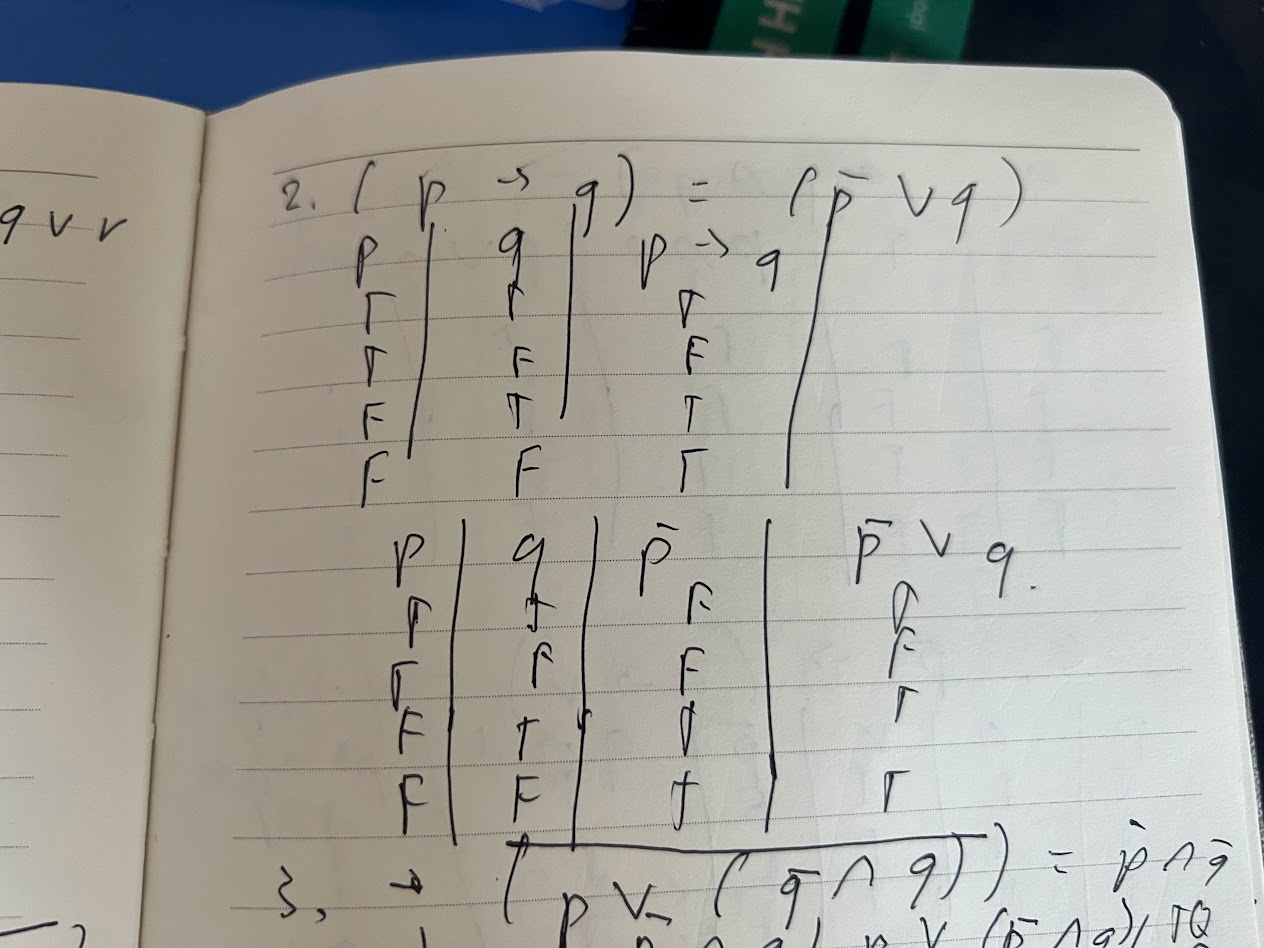 q ∨ r
2. ( p → q ) = ( p̄ ∨ q )
p | q | p → q |
T | T | T
T | F | F
F | T | T
F | F | T
p | q | p̄ | p̄ ∨ q .
T | T | F | T
T | F | F | F
F | T | T | T
F | F | T | T
3. → ( p ∨ ( q̄ ∧ q ) ) = p̄ ∧ q̄